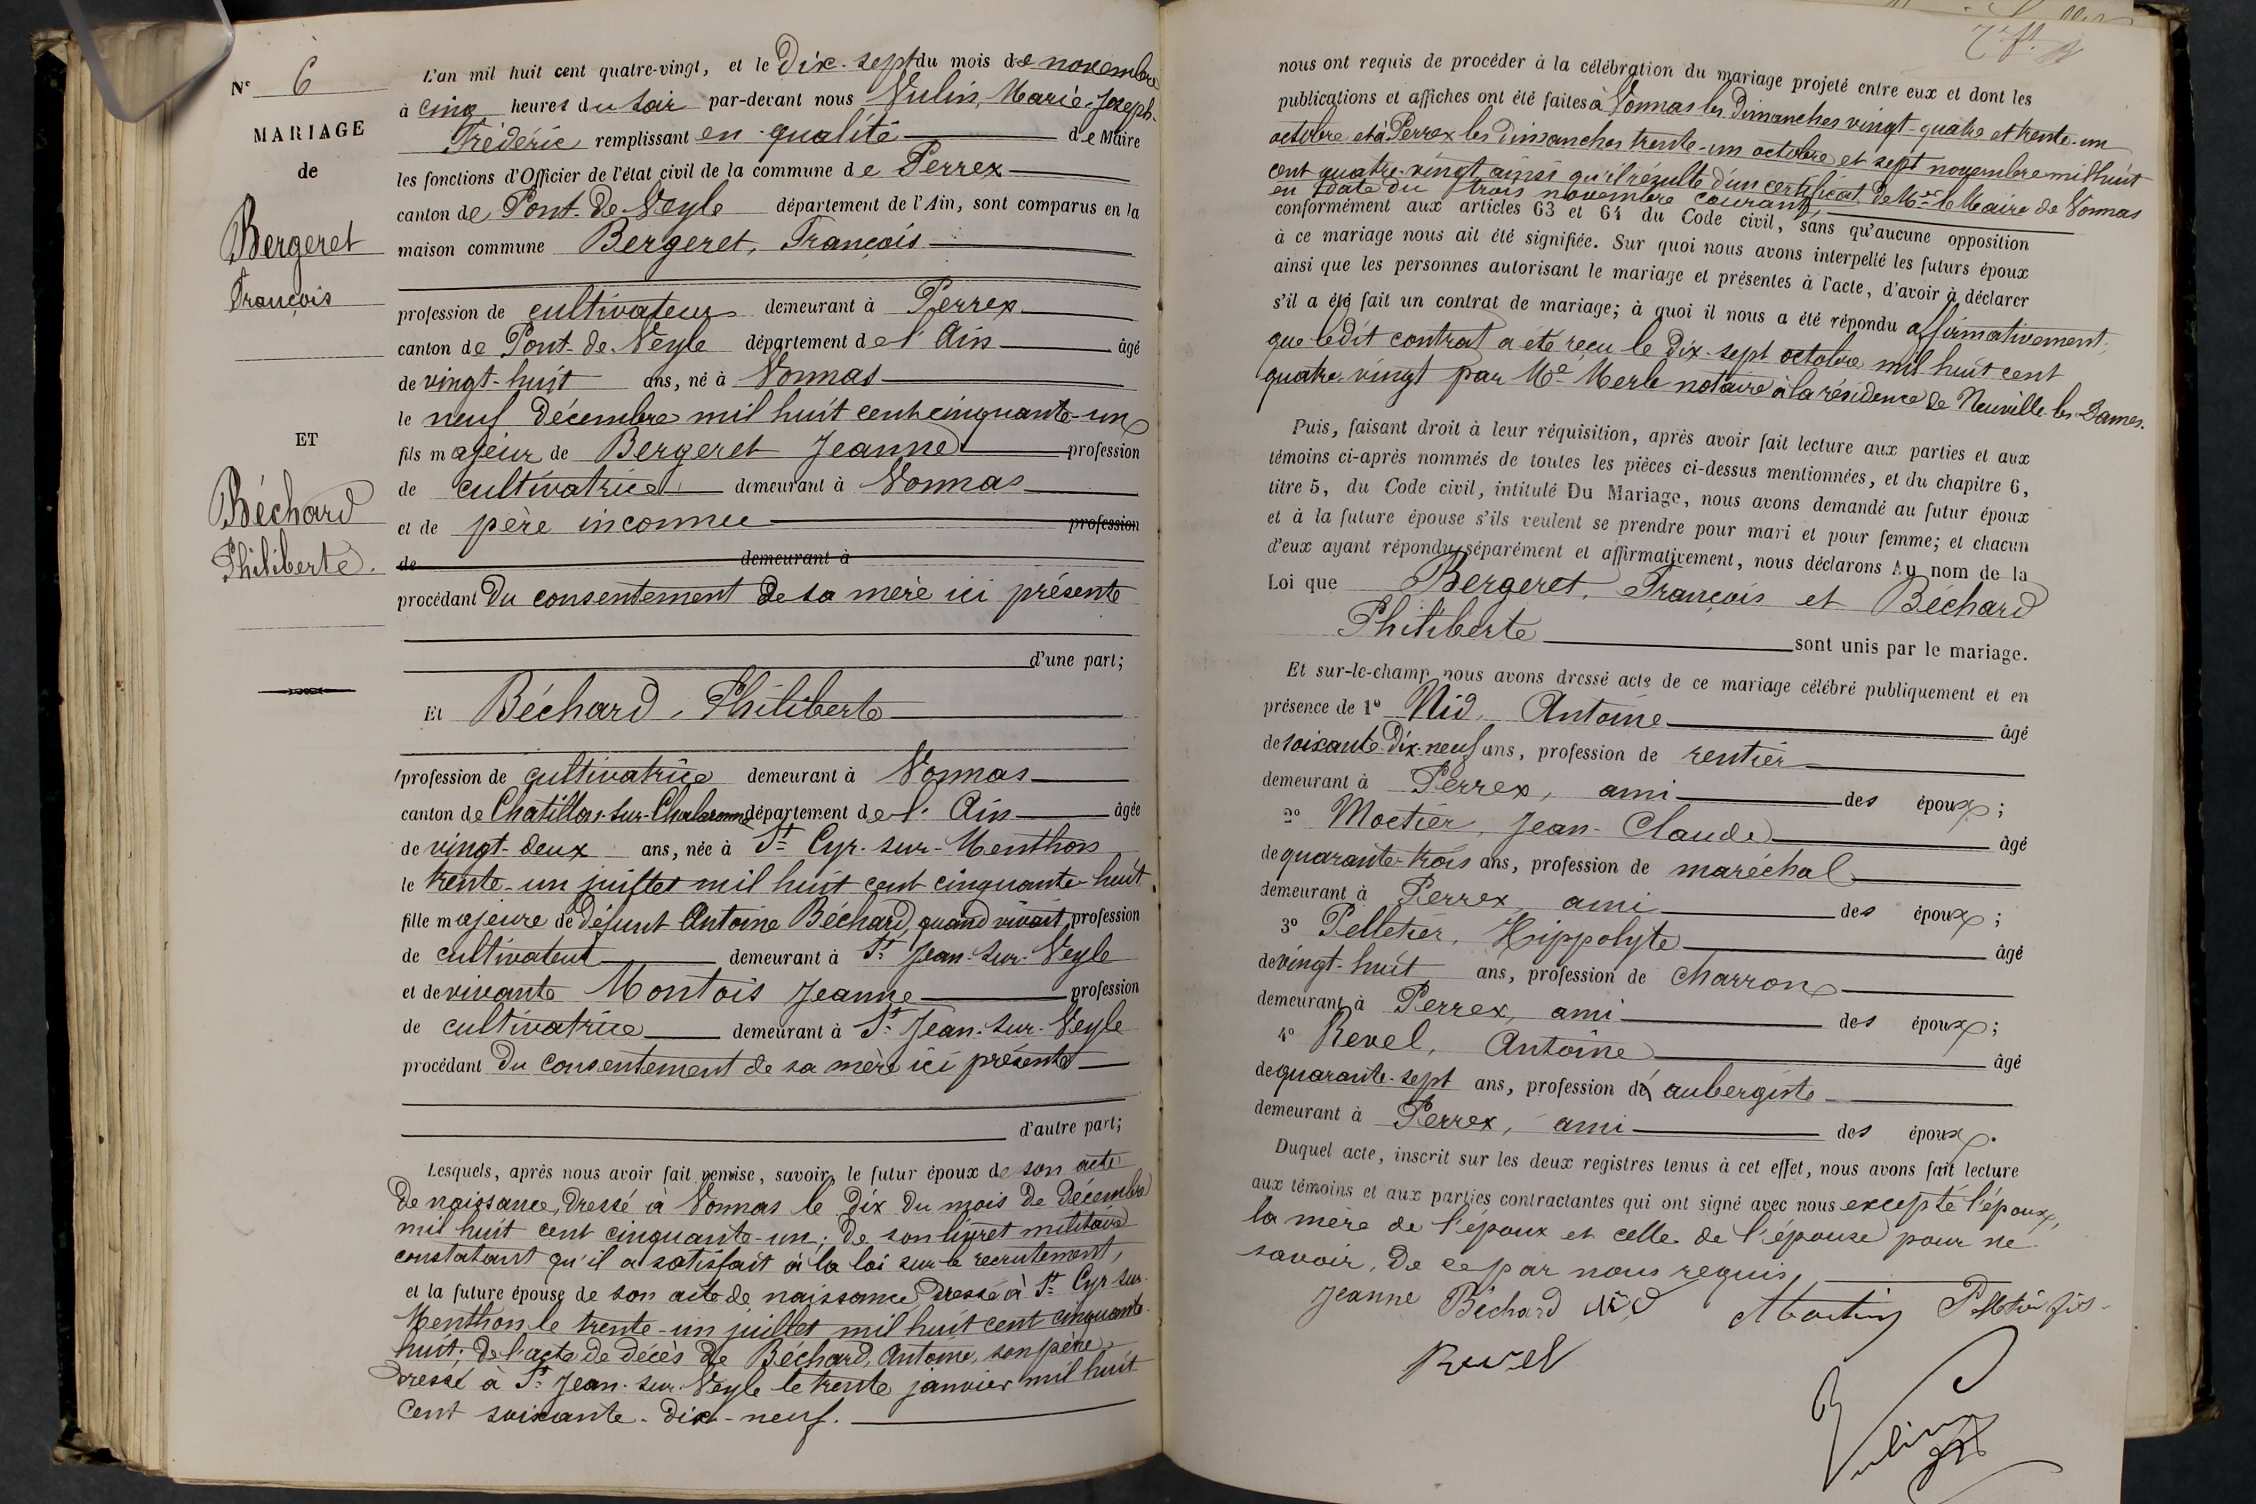 N° 6
MARIAGE
de
Bergeret
François
ET
Béchard
Philiberte.
L'an mil huit cent quatre-vingt, et le Dix-sept du mois de novembre
à cinq heures du soir par-devant nous Vulin, Marie-Joseph-
Frédéric remplissant en qualité de Maire
les fonctions d'Officier de l'état civil de la commune de Perrex
canton de Pont-de-Veyle département de l'Ain, sont comparus en la
maison commune Bergeret, François
profession de cultivateur demeurant à Perrex
canton de Pont-de-Veyle département de l'Ain âgé
de vingt-huit ans, né à Vonnas
le neuf Décembre mil huit cent cinquante-un
fils majeur de Bergeret Jeanne profession
de cultivatrice demeurant à Vonnas
et de père inconnu profession
de demeurant à
procédant du consentement de sa mère ici présente
d'une part;
Et Béchard, Philiberte
profession de cultivatrice demeurant à Vonnas
canton de Chatillon-sur-Chalaronne département de l'Ain âgée
de vingt-deux ans, née à St Cyr-sur-Menthon
le trente-un juillet mil huit cent cinquante-huit
fille majeure de défunt Antoine Béchard, quand vivait, profession
de cultivateur demeurant à St Jean-sur-Veyle
et de vivante Montois Jeanne profession
de cultivatrice demeurant à St Jean-sur-Veyle
procédant du consentement de sa mère ici présente
d'autre part;
Lesquels, après nous avoir fait remise, savoir, le futur époux de son acte
de naissance, dressé à Vonnas le dix du mois de décembre
mil huit cent cinquante-un; de son livret militaire
constatant qu'il a satisfait à la loi sur le recrutement,
et la future épouse de son acte de naissance dressé à St Cyr-sur-
Menthon le trente-un juillet mil huit cent cinquante-
huit; de l'acte de décès de Béchard, Antoine, son père
dressé à St Jean-sur-Veyle le trente janvier mil huit
cent soixante-dix-neuf.
nous ont requis de procéder à la célébration du mariage projeté entre eux et dont les
publications et affiches ont été faites à Vonnas les Dimanches vingt-quatre et trente-un
octobre et à Perrex les Dimanches trente-un octobre et sept novembre mil huit
cent quatre-vingt ainsi qu'il résulte d'un certificat de Mr le Maire de Vonnas
en date du trois novembre courant,
conformément aux articles 63 et 64 du Code civil, sans qu'aucune opposition
à ce mariage nous ait été signifiée. Sur quoi nous avons interpellé les futurs époux
ainsi que les personnes autorisant le mariage et présentes à l'acte, d'avoir à déclarer
s'il a été fait un contrat de mariage; à quoi il nous a été répondu affirmativement;
que ledit contrat a été reçu le dix-sept octobre mil huit cent
quatre-vingt par Me Merle notaire à la résidence de Neuville-les-Dames.
Puis, faisant droit à leur réquisition, après avoir fait lecture aux parties et aux
témoins ci-après nommés de toutes les pièces ci-dessus mentionnées, et du chapitre 6,
titre 5, du Code civil, intitulé Du Mariage, nous avons demandé au futur époux
et à la future épouse s'ils veulent se prendre pour mari et pour femme; et chacun
d'eux ayant répondu séparément et affirmativement, nous déclarons Au nom de la
Loi que Bergeret, François et Béchard
Philiberte sont unis par le mariage.
Et sur-le-champ nous avons dressé acte de ce mariage célébré publiquement et en
présence de 1° Nid, Antoine âgé
de soixante-dix-neuf ans, profession de rentier
demeurant à Perrex, ami des époux;
2° Moctier, Jean-Claude âgé
de quarante-trois ans, profession de maréchal
demeurant à Perrex, ami des époux;
3° Pelletier, Hippolyte âgé
de vingt-huit ans, profession de charron
demeurant à Perrex, ami des époux;
4° Revel, Antoine âgé
de quarante-sept ans, profession d'aubergiste
demeurant à Perrex, ami des époux.
Duquel acte, inscrit sur les deux registres tenus à cet effet, nous avons fait lecture
aux témoins et aux parties contractantes qui ont signé avec nous excepté l'époux,
la mère de l'époux et celle de l'épouse pour ne
savoir, de ce par nous requis,
Jeanne Béchard Nid Pelletier fils
Revel
Vulin